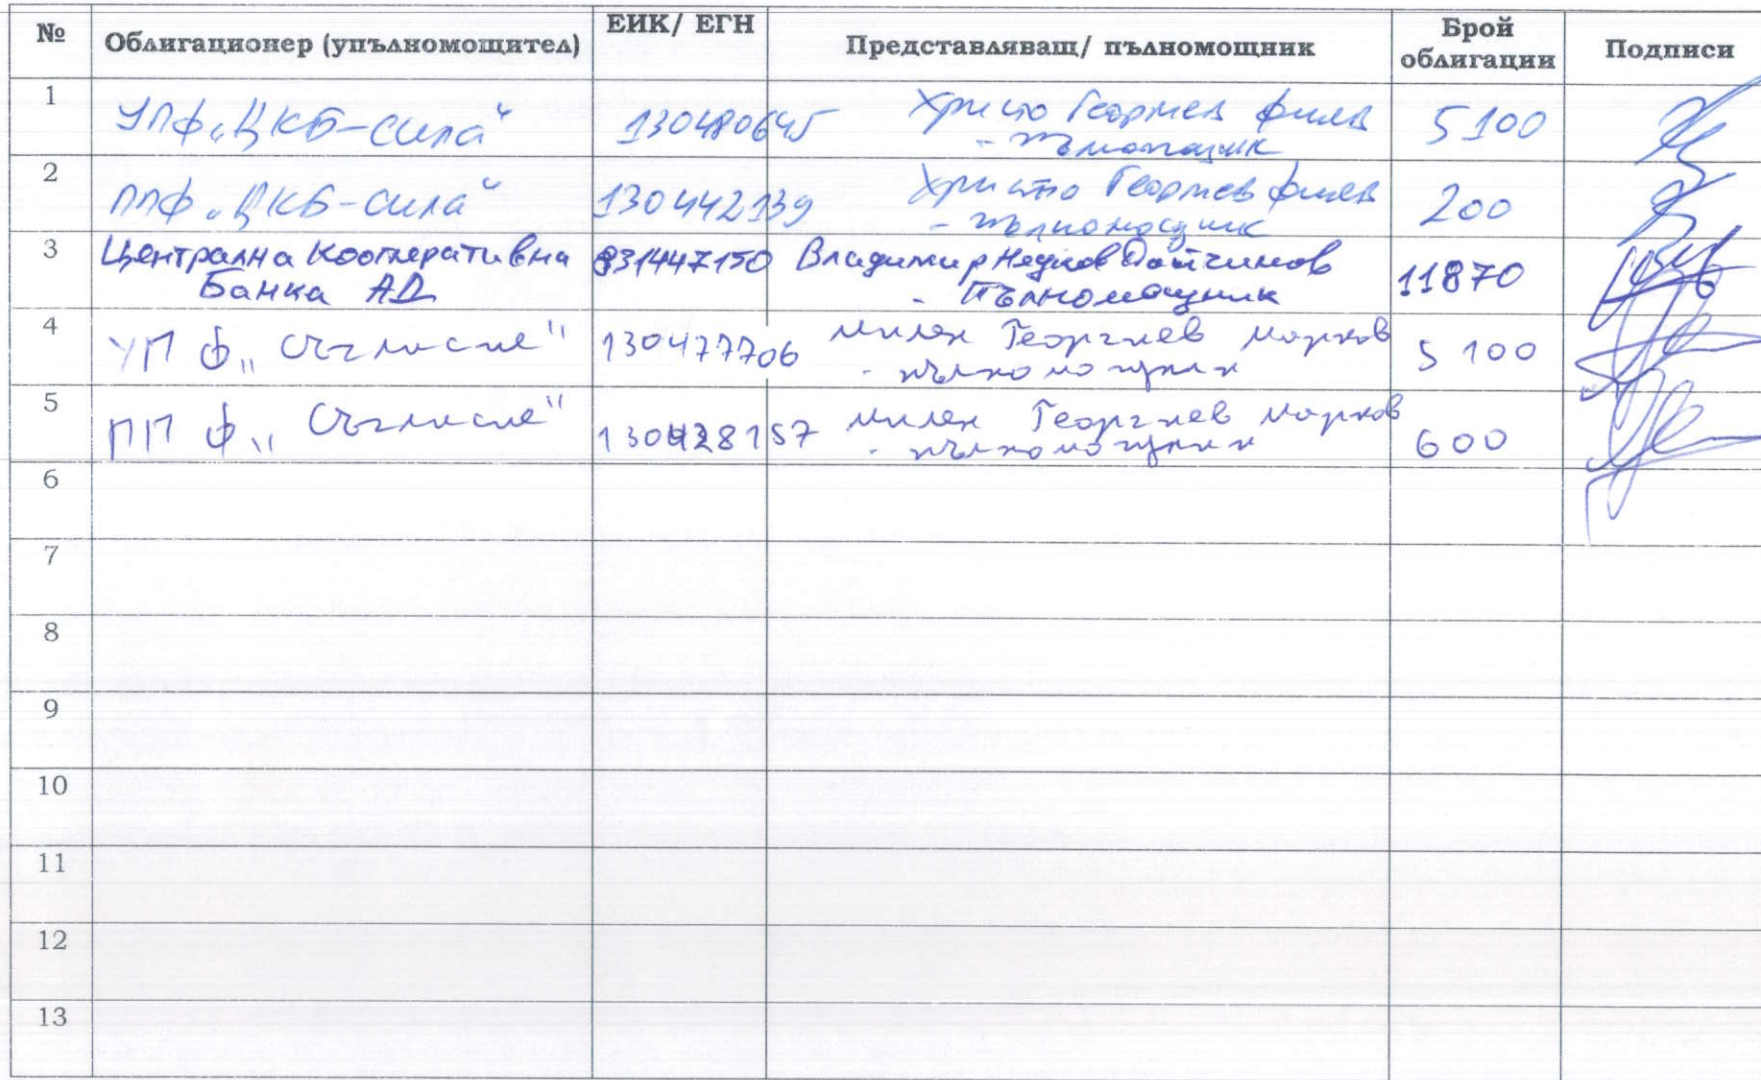 № Облигационер (упълномощител) ЕИК/ ЕГН Представляващ/ пълномощник Брой облигации Подписи
1 УПФ „ЦКБ-Сила“ 130480645 Христо Георгиев Филев 5100
- пълномощник
2 ППФ „ЦКБ-Сила“ 130442139 Христо Георгиев Филев 200
- пълномощник
3 Централна Кооперативна 831447150 Владимир Недков 11870
Банка АД - Пълномощник
4 УПФ „Съгласие" 130477706 Милен Георгиев Марков 5100
- пълномощник
5 ППФ „Съгласие" 130428157 Милен Георгиев Марков 600
- пълномощник
6
7
8
9
10
11
12
13